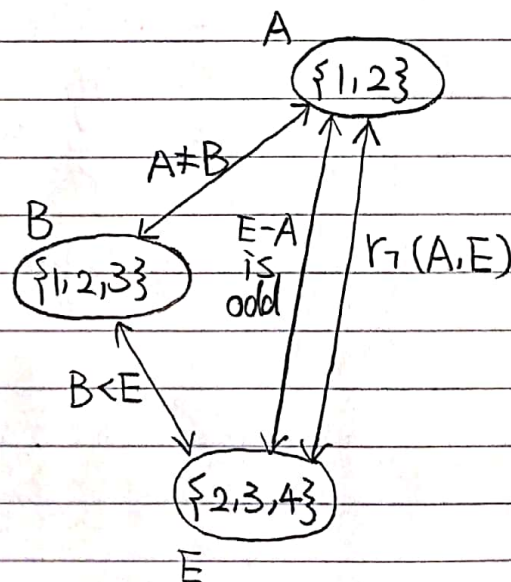 A
{1,2}
A≠B
B
{1,2,3}
E-A
is
odd
r₇(A,E)
B<E
{2,3,4}
E